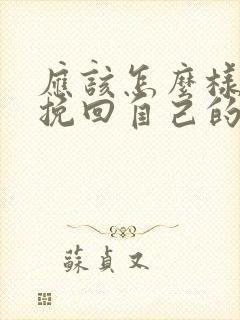 應該怎麼樣
挽回自己的
蘇貞又